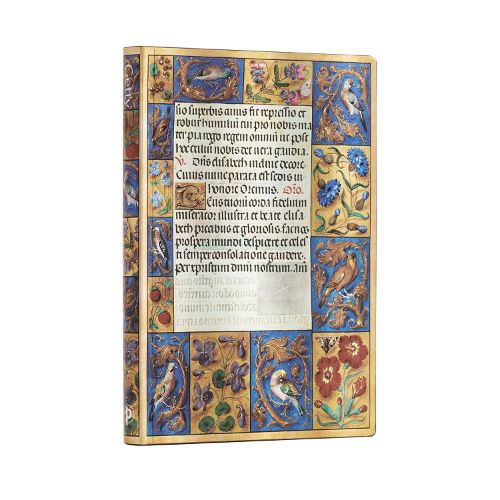 sio superbis cuius fit repressio et
robur humiliū cui pro nobis ma
ter pia rogo regem omniū ut post
hoc nobis det vera gaudia.
induit decore
Cuius nunc parata est sedis in
honore Oremus. Oro.
eus tuorū corda fidelium
miserator illustra et beate elisa
beth precibus et gloriosis fac nos
prospera mundi despicere et celes
ti semper consolatione gaudere.
Per xpristum dnm nostrum. am